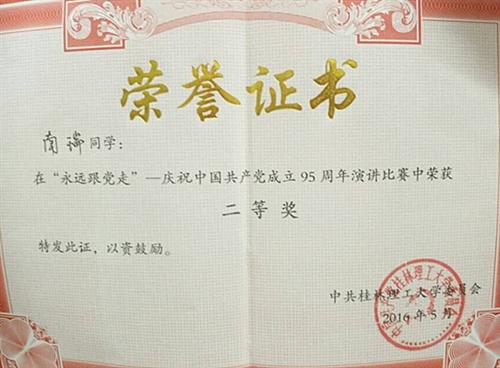 荣誉证书
南瑞同学：
在“永远跟党走”—庆祝中国共产党成立95周年演讲比赛中荣获
二等奖
特发此证，以资鼓励。
中共桂林理工大学委员会
2016年5月